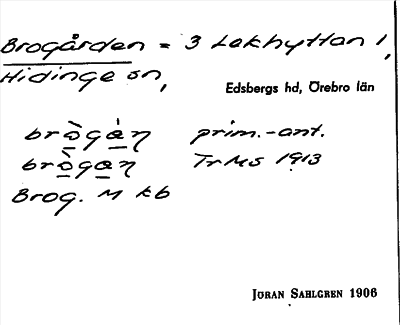 Brogården = 3 Lekhyttan 1,
Hidinge sn,
Edsbergs hd, Örebro län
brò̲gà̲ƞ prim.-ant.
brò̲ga̲ƞ TrMs 1913
Brog. M kb
JÖRAN SAHLGREN 1906